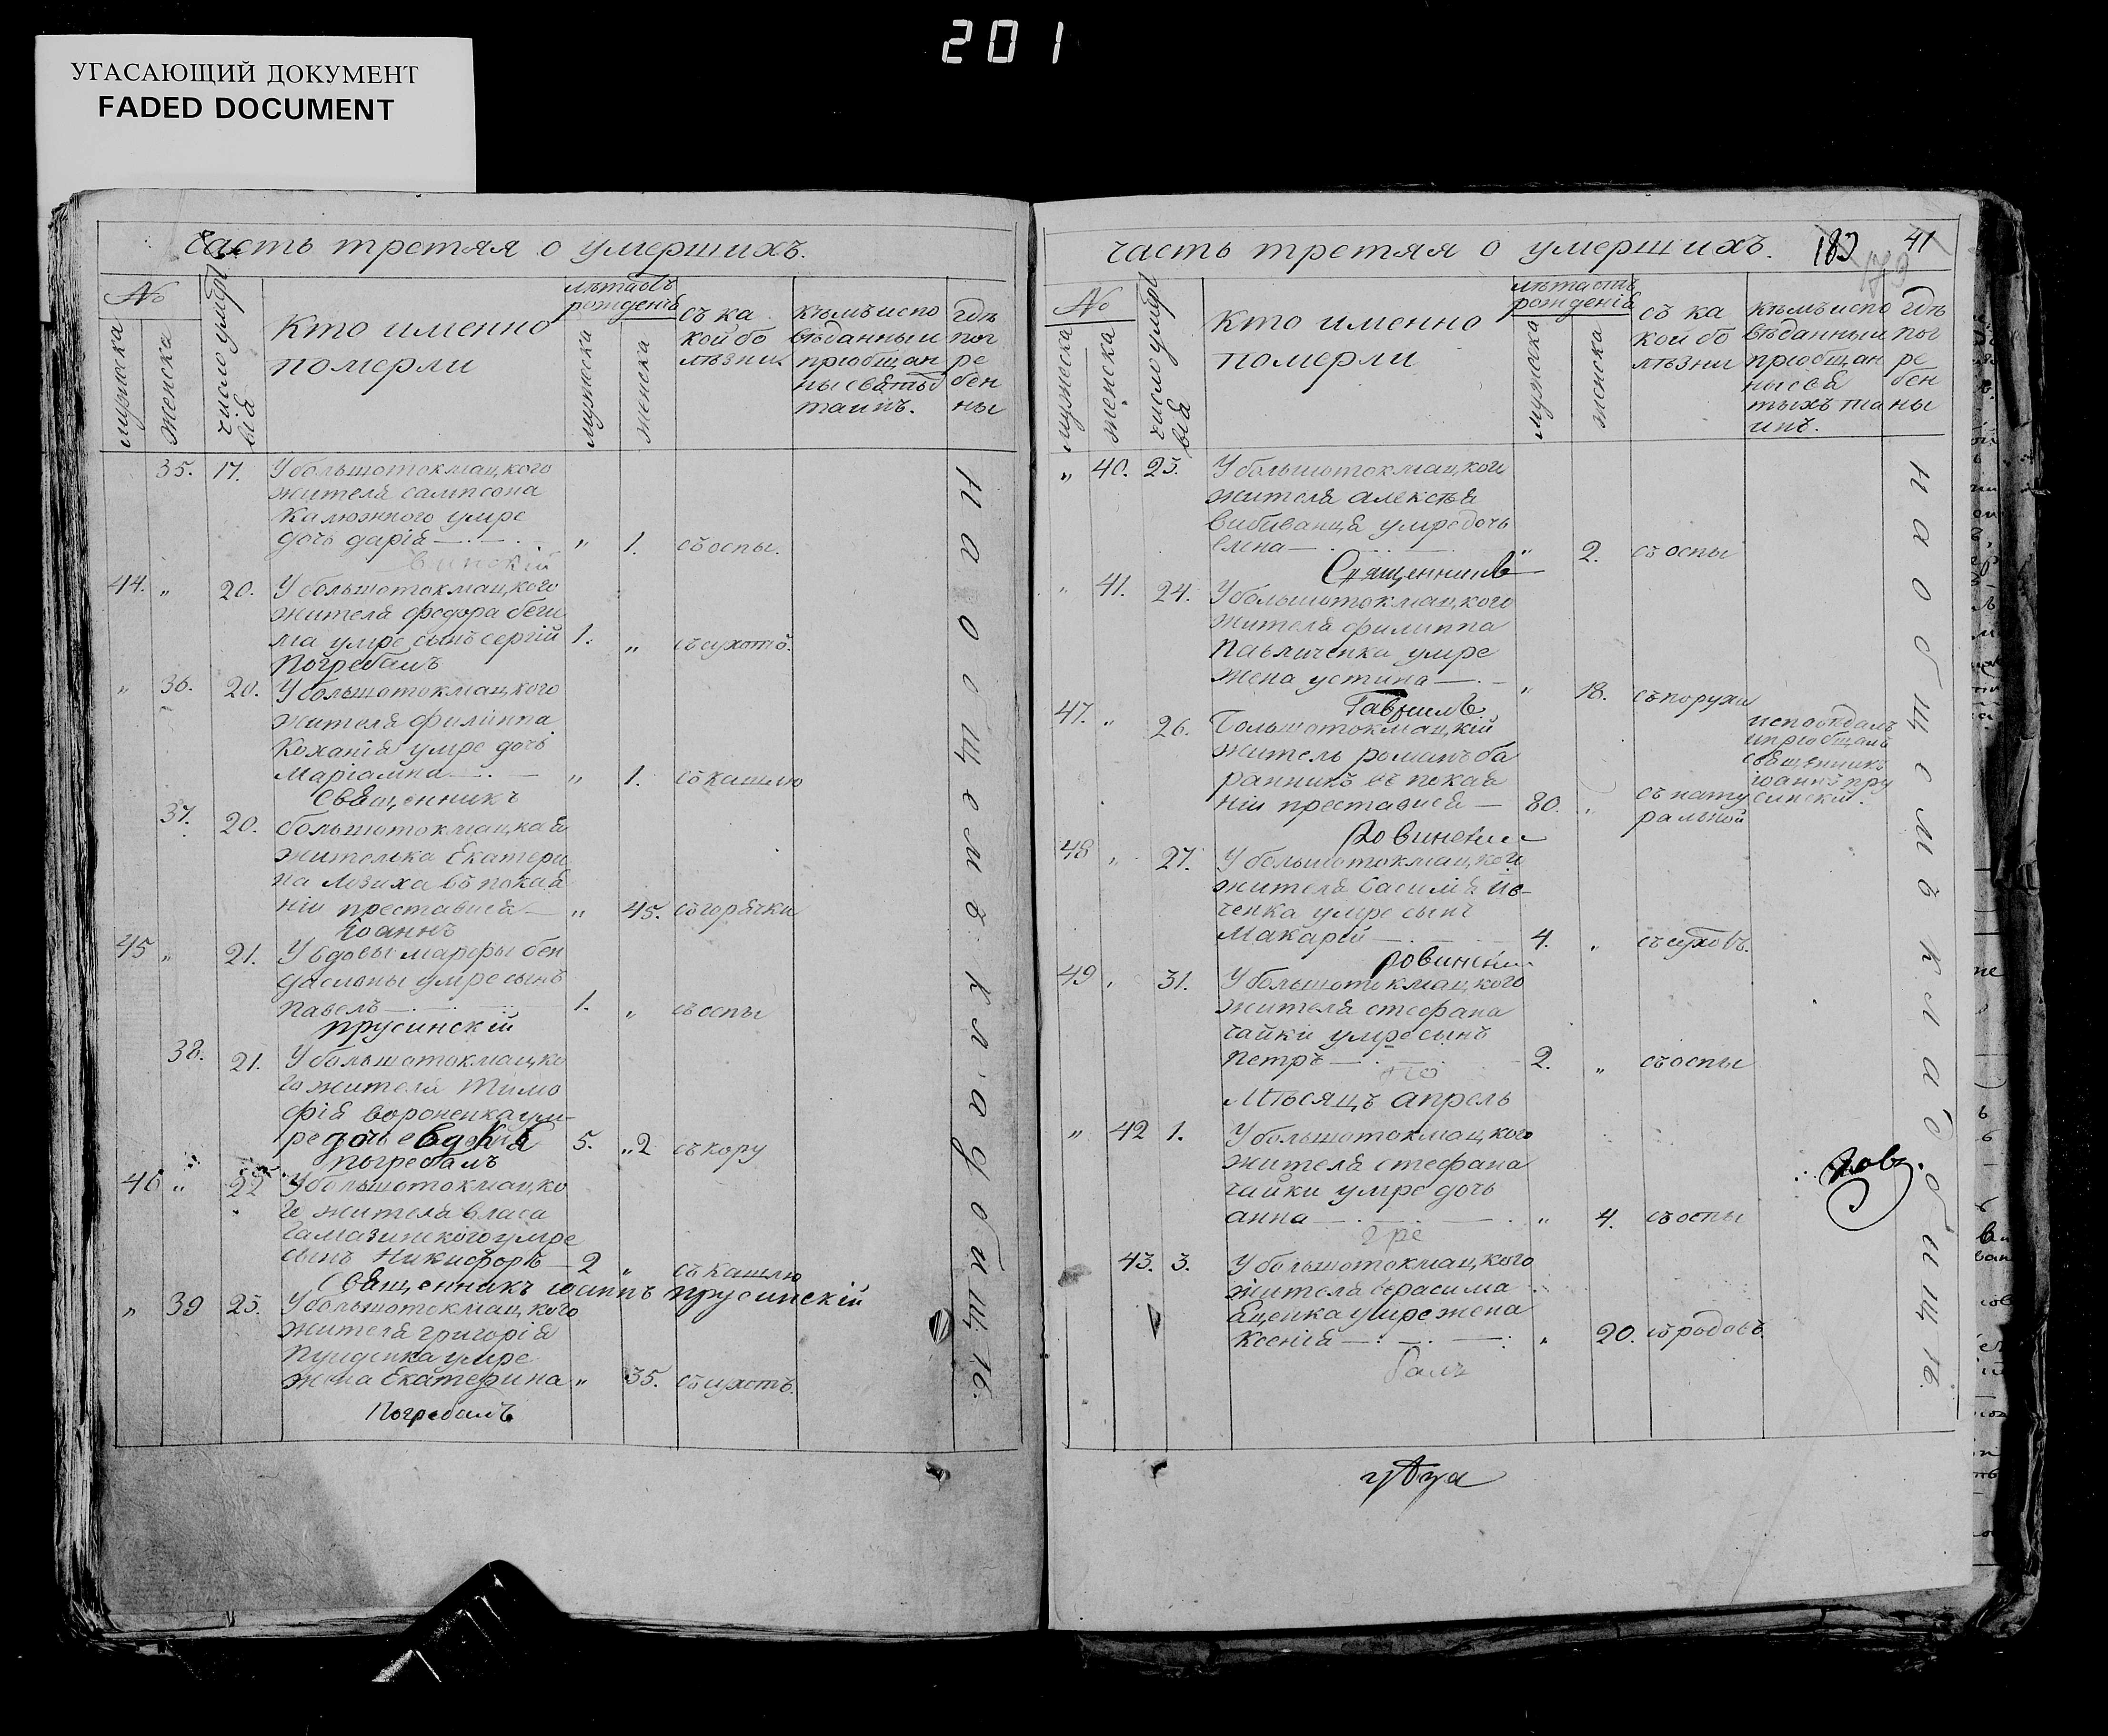 201
УГАСАЮЩИЙ ДОКУМЕНТ
FADED DOCUMENT
часть третяя о умершихъ.
№
мужеска
женска
число умер
кто именно
померли
лѣта отъ
рожденія
мужеска
женска
съ ка
кой бо
лѣзни
кѣмъ испо
вѣданны и
приобщан
ны святыхъ
таинъ.
гдѣ
пог
ре
бен
ны
35. 17. У большотокмацкого
жителя сампсона
калюжного умре
дочь дарія „ 1. съ оспы.
44. „ 20. У большотокмацкого
жителя федора беги
ма умре сынъ сергій 1. „
Погребалъ
„ 36. 20. У большотокмацкого
жителя филиппа
Коханія умре дочь
Маріамна „ 1. съ кашлю
Священникъ
37. 20. большотокмацкая
жителька Екатери
на в покая
ніи преставися „ 45. съ горячки
Иоаннъ
45 „ 21. У вдовы марфы
умре сынъ
Павелъ 1. „ съ оспы
прусинскій
38. 21. У большотокмацко
го жителя Тимо
фія вороненка ум
ре дочь евдокія 5. „ 2 съ кору
погребалъ
46 „ 22 У большотокмацко
го жителя власа
умре
сынъ Никифоръ 2 „ съ кашлю
Священникъ иоаннъ прусинскій
„ 39 23. У большотокмацкого
жителя григорія
умре
жена Екатерина „ 35. съ сухотъ.
Погребалъ
на общемъ кладбищѣ.
часть третяя о умершихъ. 183 41
№
мужеска
женска
число умер
кто именно
померли
лѣта отъ
рожденія
мужеска
женска
съ ка
кой бо
лѣзни
кѣмъ испо
вѣданны и
приобщан
ны свя
тыхъ та
инъ.
гдѣ
пог
ре
бен
ны
„ 40. 23. У большотокмацкого
жителя алексѣя
вибиванця умре дочь
елена „ 2. съ оспы
Священникъ
„ 41. 24. У большотокмацкого
жителя филиппа
Павличенка умре
жена устина „ 18.
Гавриилъ
47. „ 26. Большотокмацкій
житель романъ ба
ранникъ въ покая
ніи преставися 80. „ съ нату
ральной
исповѣдалъ
и приобщалъ
священникъ
иоаннъ пру
синскій.
48 „ 27. У большотокмацкого
жителя василія
ченка умре сынъ
Макарій 4. „
49 „ 31. У большотокмацкого
жителя стефана
чайки умре сынъ
Петръ 2. „ съ оспы
Мѣсяцъ апрель
„ 42 1. У большотокмацкого
жителя стефана
чайки умре дочь
анна „ 4. съ оспы
гре
43. 3. У большотокмацкого
жителя герасима
яценка умре жена
Ксенія „ 20. съ родовъ
балъ
на общемъ кладбищѣ.